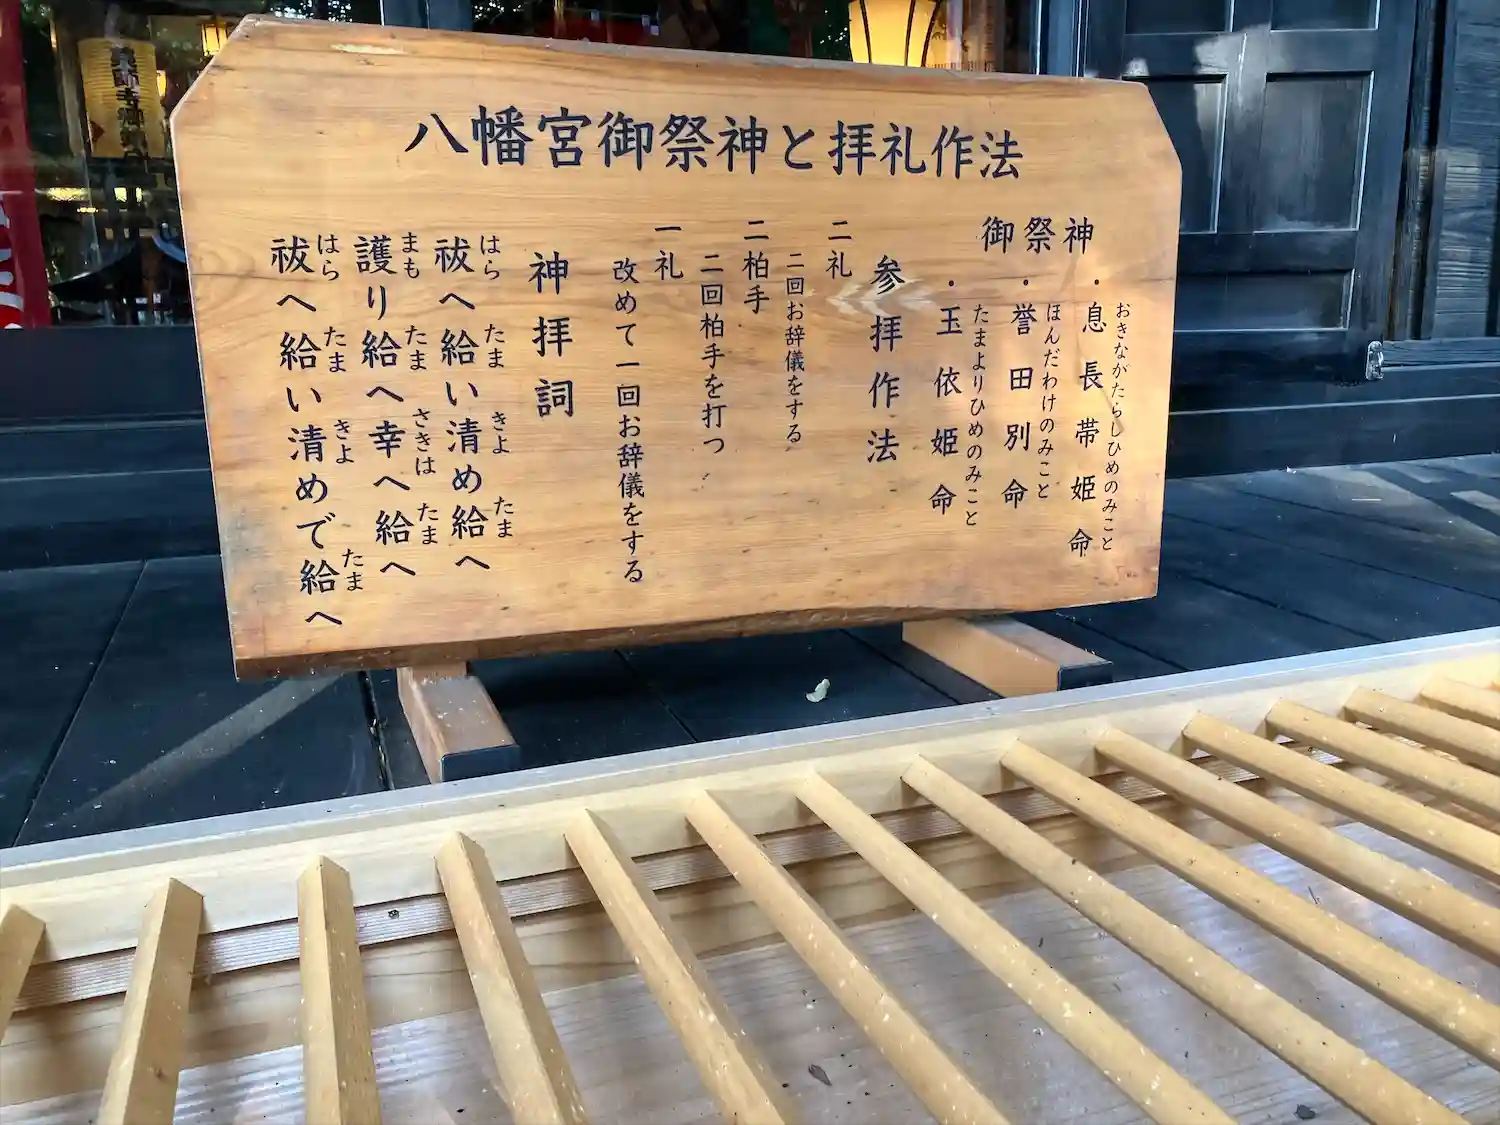 八幡宮御祭神と拝礼作法
御祭神
・息長帯姫命
おきながたらしひめのみこと
・誉田別命
ほんだわけのみこと
・玉依姫命
たまよりひめのみこと
参拝作法
二礼
二回お辞儀をする
二柏手
二回柏手を打つ
一礼
改めて一回お辞儀をする
神拝詞
祓へ給い清め給へ
はら たま きよ たま
護り給へ幸へ給へ
まも たま さきは たま
祓へ給い清めで給へ
はら たま きよ たま